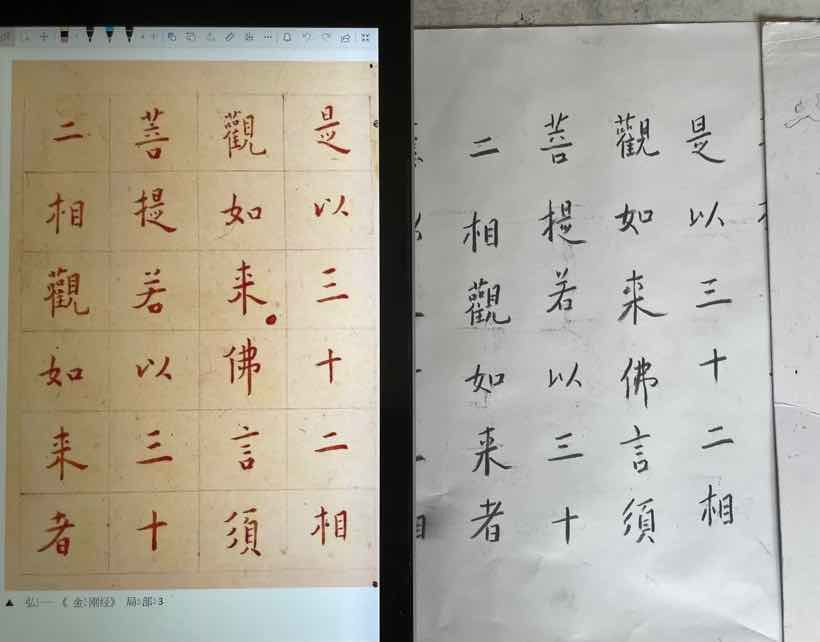 是以三十二相
觀如来佛言須
菩提若以三十
二相觀如来者
▲ 弘一《金刚经》局部3
是以三十二相
觀如来佛言須
菩提若以三十
二相觀如来者